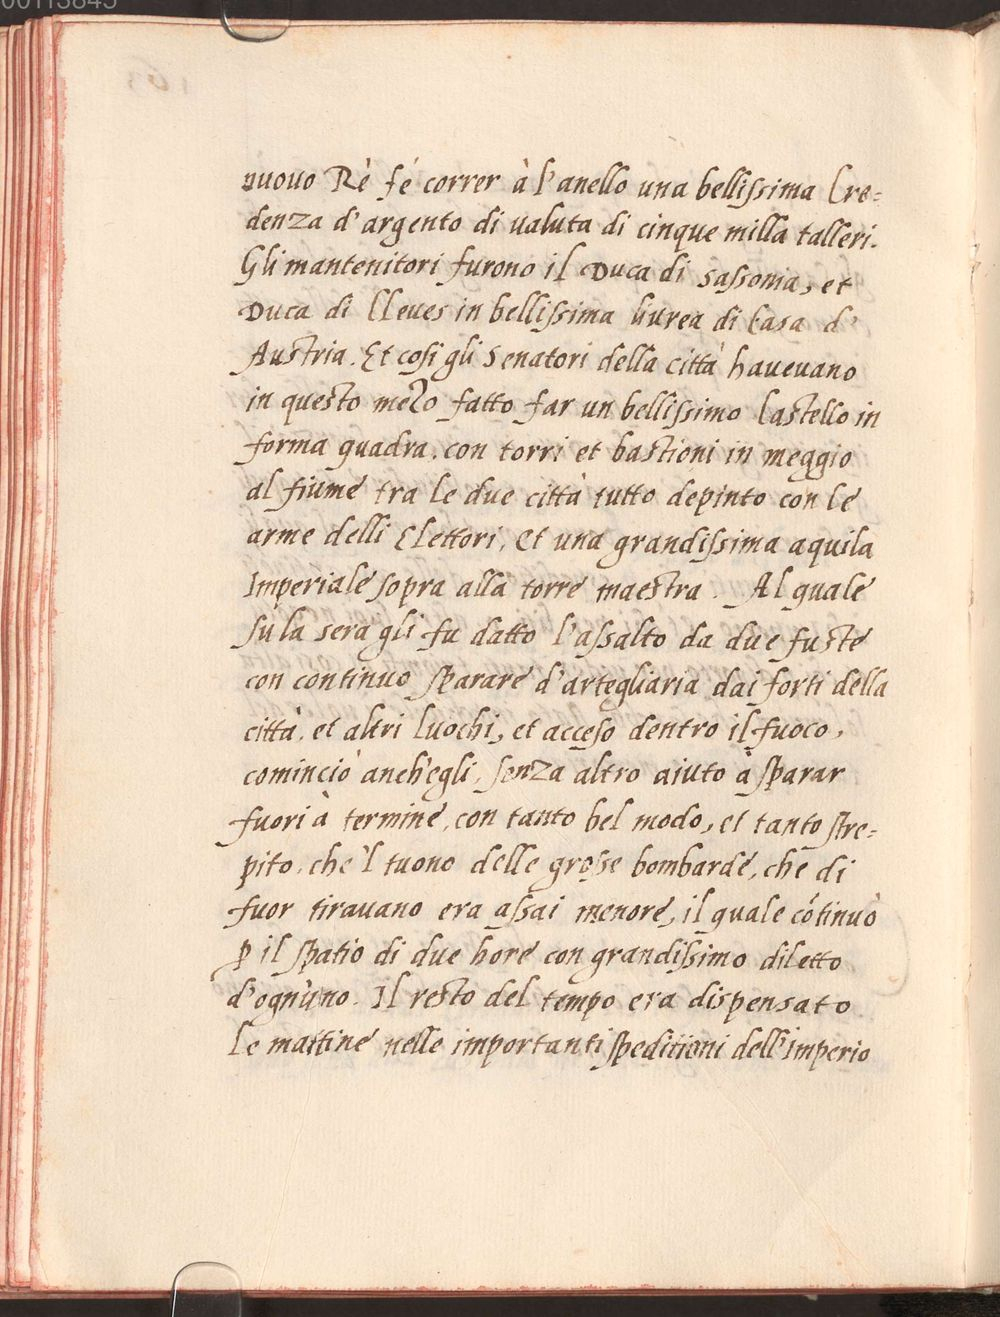 00113845
nuouo Rè fé correr à l'anello una bellissima Cre=
denza d'argento di ualuta di cinque milla talleri.
Gli mantenitori furono il Duca di Sassonia, et
Duca di Cleues in bellissima liurea di Casa d'
Austria. Et cosi gli Senatori della città haueuano
in questo mezo fatto far un bellissimo Castello in
forma quadra, con torri et bastioni in meggio
al fiume tra le due città tutto depinto con le
arme delli Elettori, Et una grandissima aquila
Imperiale sopra alla torre maestra. Al quale
su la sera gli fu datto l'assalto da due fuste
con continuo sparare d'artegliaria dai forti della
città, et altri luochi, et acceso dentro il fuoco,
cominciò anch'egli, senza altro aiuto à sparar
fuori à termine, con tanto bel modo, et tanto stre=
pito, che 'l tuono delle grosse bombarde, che di
fuor tirauano era assai menore, il quale cótinuò
ꝑ il spatio di due hore con grandissimo diletto
d'ogn'uno. Il resto del tempo era dispensato
le mattine nelle importanti speditioni dell'Imperio